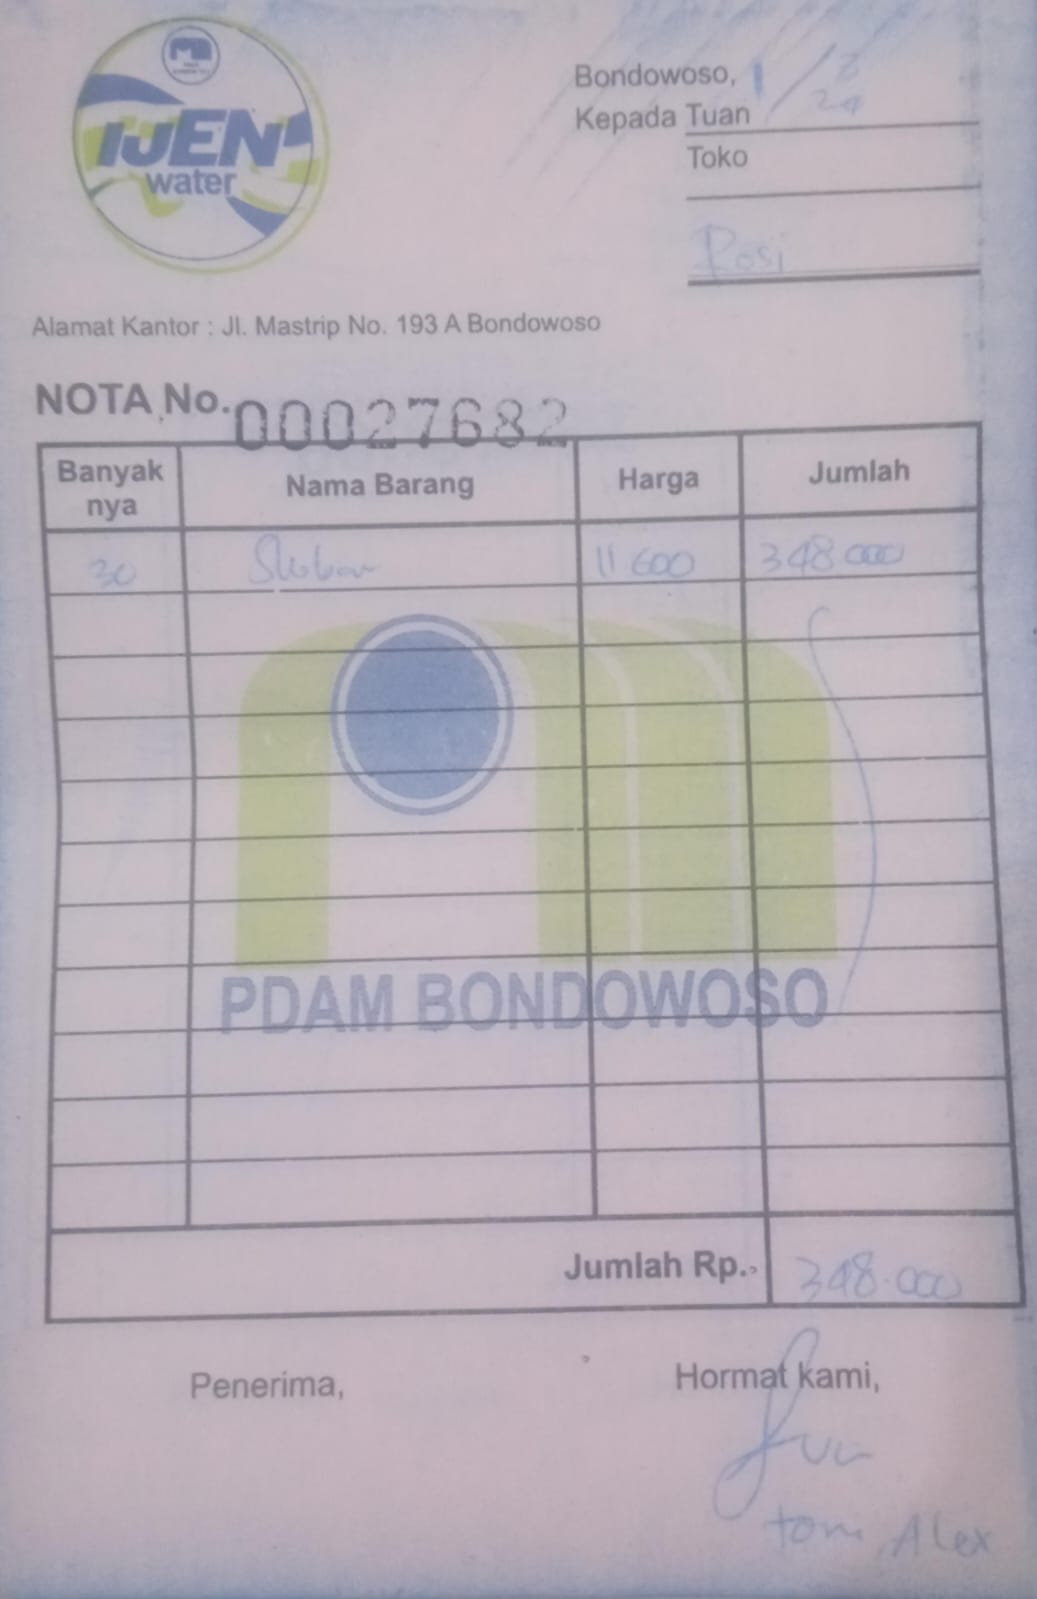 IJEN
water
Bondowoso, 1/3
24
Kepada Tuan
Toko
Rosi
Alamat Kantor : Jl. Mastrip No. 193 A Bondowoso
NOTA No. 00027682
Banyak nya Nama Barang Harga Jumlah
30 11 600 348 000
PDAM BONDOWOSO
Jumlah Rp. 348.000
Penerima, Hormat kami,
tom Alex